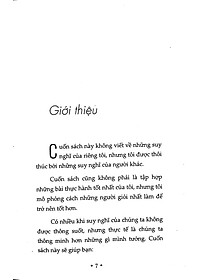 Giới thiệu
Cuốn sách này không viết về những suy
nghĩ của riêng tôi, nhưng tôi được thôi
thúc bởi những suy nghĩ của người khác.
Cuốn sách cũng không phải là tập hợp
những bài thực hành tốt nhất của tôi, nhưng tôi
mô phỏng cách những người giỏi nhất làm để
trở nên tốt hơn.
Có nhiều khi suy nghĩ của chúng ta không
được thông suốt, nhưng thực tế là chúng ta
thông minh hơn những gì mình tưởng. Cuốn
sách này sẽ giúp bạn:
• 7 •